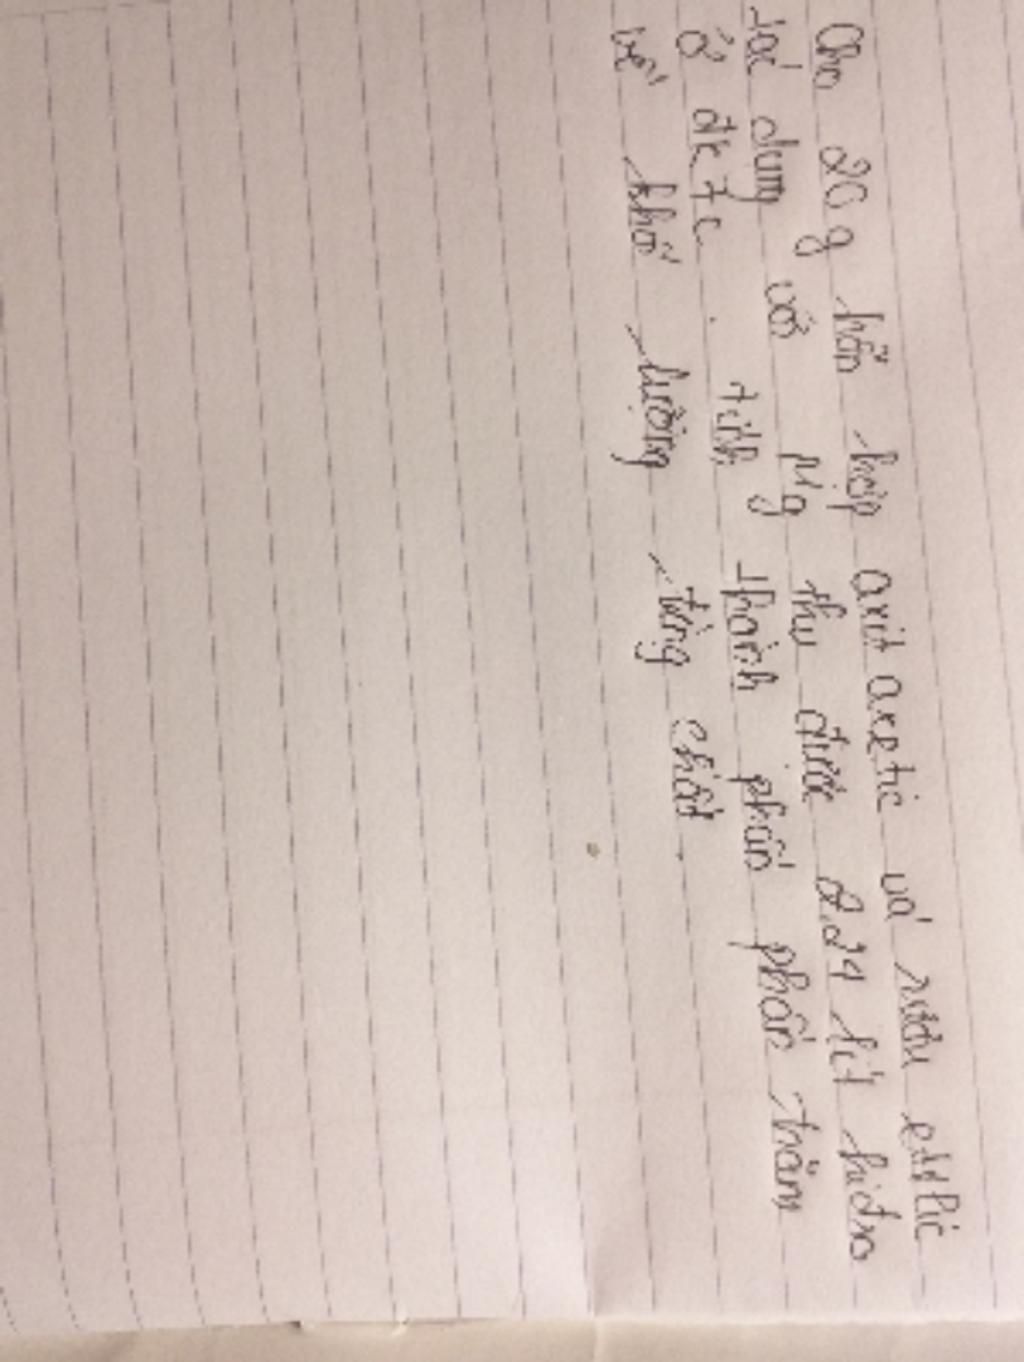 Cho 20g hỗn hợp axit axetic và rượu etylic
tác dụng với Mg thu được 2,24 lít hidro
ở đktc. tính thành phần phần trăm
về khối lượng từng chất.